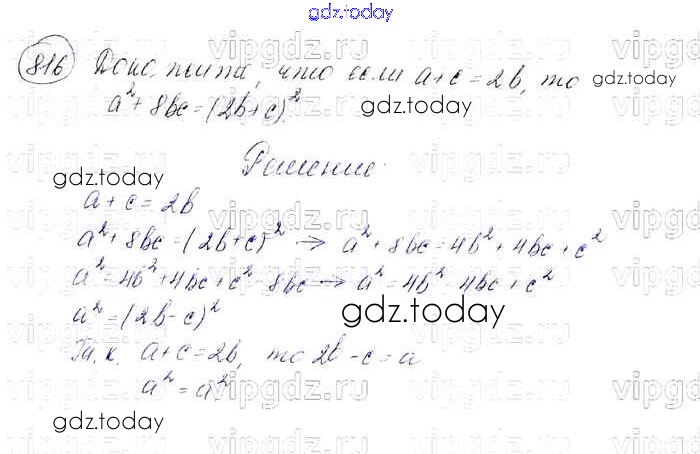 gdz.today
816 Докажите, что если a+c=2b, то gdz.today
a²+8bc=(2b+c)².
gdz.today
Решение.
gdz.today
a+c=2b
a²+8bc=(2b+c)² → a²+8bc=4b²+4bc+c²
a²=4b²+4bc+c²-8bc → a²=4b²-4bc+c²
a²=(2b-c)²
gdz.today
Т.к. a+c=2b, то 2b-c=a
a²=a².
gdz.today
vipgdz.ru